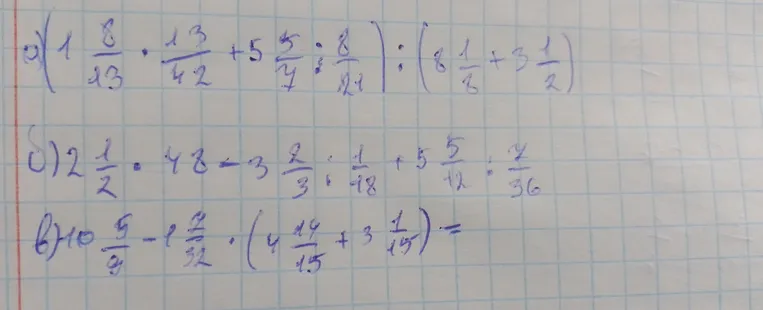 а) (1 8/13 · 13/42 + 5 5/7 : 8/21) : (8 1/8 + 3 1/2)
б) 2 1/2 · 48 - 3 2/3 : 1/18 + 5 5/12 : 7/36
в) 10 5/9 - 1 7/32 · (4 14/15 + 3 1/15) =